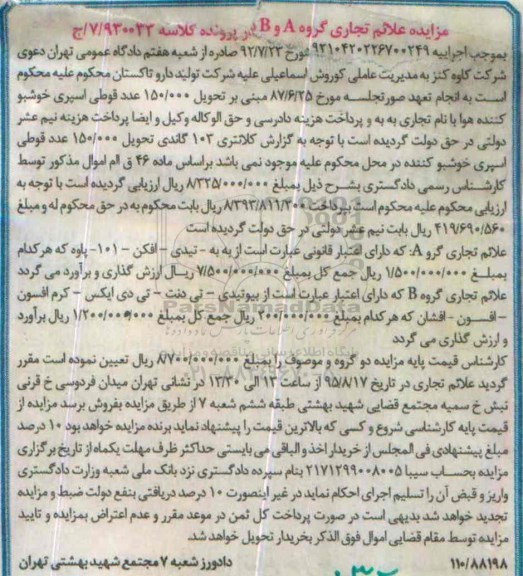 مزایده علائم تجاری گروه A و B در پرونده کلاسه ۷/۹۳۰۰۳۳/ج
بموجب اجراییه ۹۲۱۰۴۲۰۲۲۶۷۰۰۲۴۹ مورخ ۹۲/۷/۲۳ صادره از شعبه هفتم دادگاه عمومی تهران دعوی
شرکت کاوه کنز به مدیریت عاملی کوروش اسماعیلی علیه شرکت تولید دارو تاکستان محکوم علیه محکوم
است به انجام تعهد صورتجلسه مورخ ۸۷/۶/۲۵ مبنی بر تحویل ۱۵۰/۰۰۰ عدد قوطی اسپری خوشبو
کننده هوا با نام تجاری به به و پرداخت هزینه دادرسی و حق الوکاله وکیل و ایضا پرداخت هزینه نیم عشر
دولتی در حق دولت گردیده است با توجه به گزارش کلانتری ۱۰۳ گاندی تحویل ۱۵۰/۰۰۰ عدد قوطی
اسپری خوشبو کننده در محل محکوم علیه موجود نمی باشد براساس ماده ۴۶ ق ام اموال مذکور توسط
کارشناس رسمی دادگستری بشرح ذیل بمبلغ ۸/۳۲۵/۰۰۰/۰۰۰ ریال ارزیابی گردیده است با توجه به
ارزیابی محکوم علیه محکوم است به پرداخت ۸/۳۹۳/۸۱۱/۲۰۰ ریال بابت محکوم به در حق محکوم له و مبلغ
۴۱۹/۶۹۰/۵۶۰ ریال بابت نیم عشر دولتی در حق دولت گردیده است
علائم تجاری گرو A: که دارای اعتبار قانونی عبارت است از به به - تیدی - افکن - ۱۰۱- پاوه که هر کدام
بمبلغ ۱/۵۰۰/۰۰۰/۰۰۰ ریال جمع کل بمبلغ ۷/۵۰۰/۰۰۰/۰۰۰ ریال ارزش گذاری و برآورد می گردد
علائم تجاری گروه B که دارای اعتبار عبارت است از بیوتیدی - تی دنت - تی دی ایکس - کرم افسون
- افسون - افشان که هر کدام بمبلغ ۲۰۰/۰۰۰/۰۰۰ ریال جمع کل بمبلغ ۱/۲۰۰/۰۰۰/۰۰۰ ریال برآورد
و ارزش گذاری می گردد
کارشناس قیمت پایه مزایده دو گروه و موصوف را بمبلغ ۸/۷۰۰/۰۰۰/۰۰۰ ریال تعیین نموده است مقرر
گردید علائم تجاری در تاریخ ۹۵/۸/۱۷ از ساعت ۱۳ الی ۱۳/۳۰ در نشانی تهران میدان فردوسی خ قرنی
نبش خ سمیه مجتمع قضایی شهید بهشتی طبقه ششم شعبه ۷ از طریق مزایده بفروش برسد مزایده از
قیمت پایه کارشناسی شروع و کسی که بالاترین قیمت را پیشنهاد نماید برنده مزایده خواهد بود ۱۰ درصد
مبلغ پیشنهادی فی المجلس از خریدار اخذ و الباقی می بایستی حداکثر ظرف مهلت یکماه از تاریخ برگزاری
مزایده بحساب سیبا ۲۱۷۱۲۹۹۰۰۸۰۰۵ بنام سپرده دادگستری نزد بانک ملی شعبه وزارت دادگستری
واریز و قبض آن را تسلیم اجرای احکام نماید در غیر اینصورت ۱۰ درصد دریافتی بنفع دولت ضبط و مزایده
تجدید خواهد شد بدیهی است در صورت پرداخت کل ثمن در موعد مقرر و عدم اعتراض بمزایده و تایید
مزایده توسط مقام قضایی اموال فوق الذکر بخریدار تحویل خواهد شد.
۱۱۰/۸۸۱۹۸ دادورز شعبه ۷ مجتمع شهید بهشتی تهران